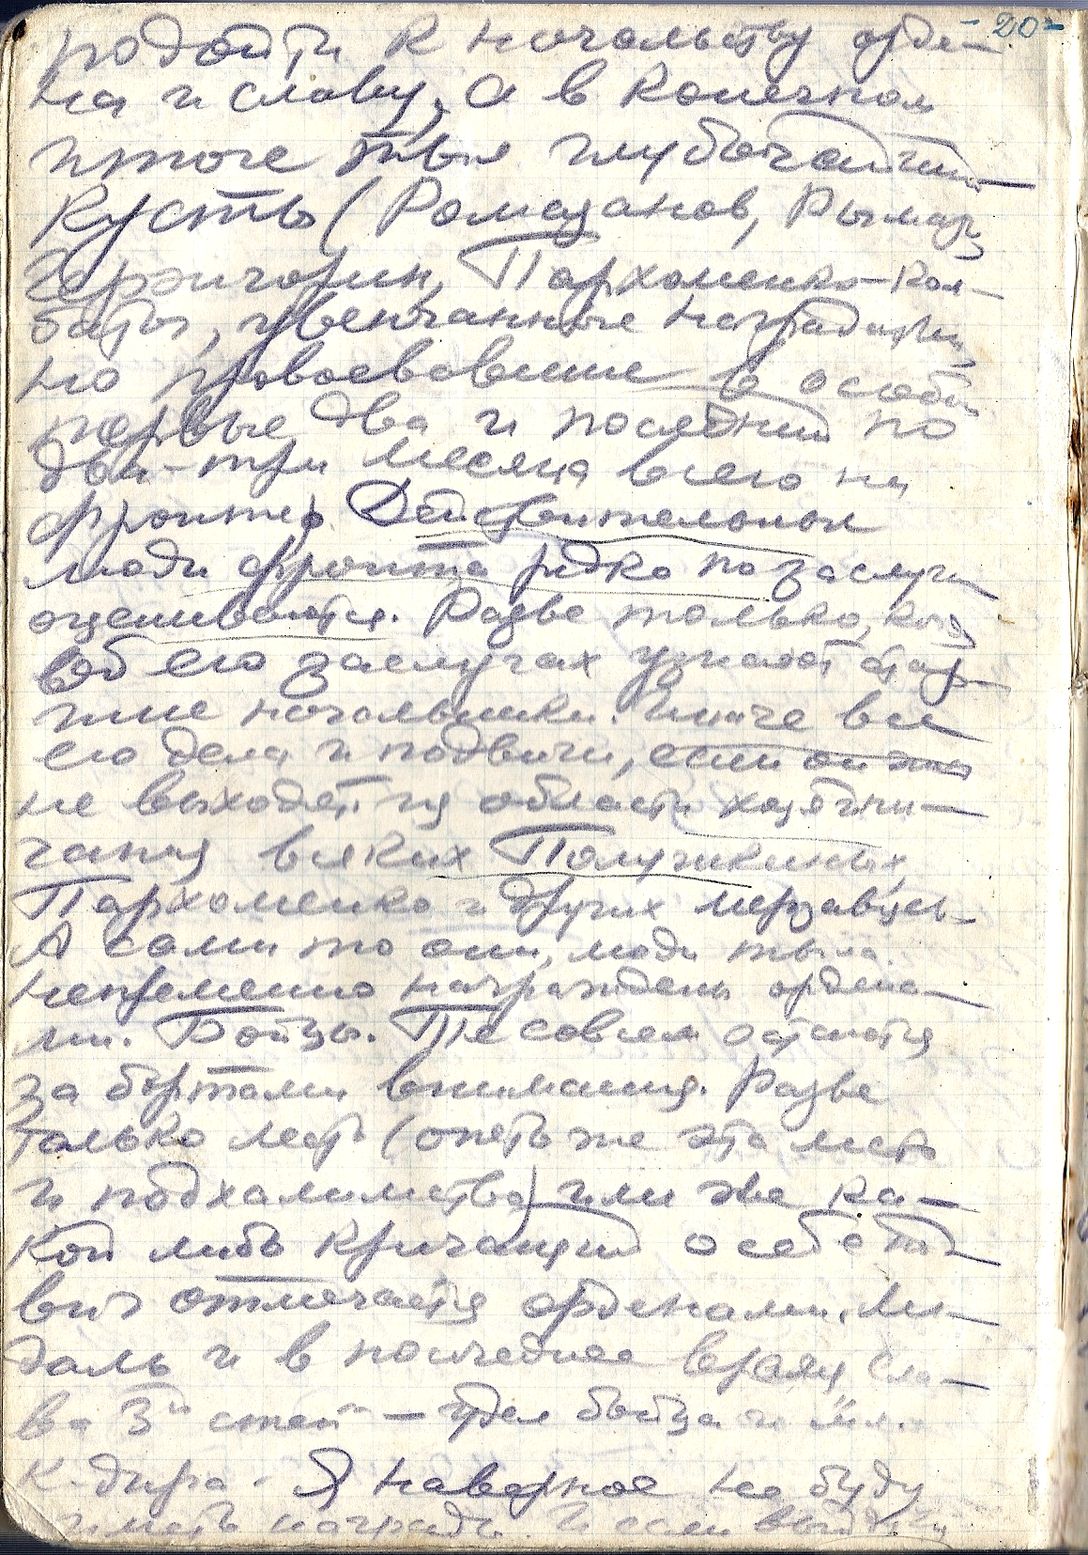 -20-
подойти к начальству орде-
на и славу, а в конечном
итоге тыл глубочайший
Кусть (Рамазанов, Рымар,
Герэнгорин, Пархоменко-ком-
баты, увенчанные наградами,
но провоевавшие в особ.
первые два и последний по
два-три месяца всего на
фронте). Действительные
люди фронта редко по заслугам
оцениваются. Разве только, когда
об его заслугах узнают стар-
шие начальники. Иначе все
его дела и подвиги,
не выходят из области хозяйни-
чания всяких Полушкиных,
Пархоменко и других мерзавцев.
А сами то они, люди тыла
непременно награждены ордена-
ми. Бойцы. Те совсем остаются
за бортами внимания. Разве
только лесть (опять же эта лесть
и подхалимство) или же ка-
кой либо кричащий о себе под-
виг отмечается орденами. Ме-
даль и в последнее время Сла-
ва 3й степ - удел бойца и мл.
к-дира. Я наверное не буду
иметь награды. И если выйду